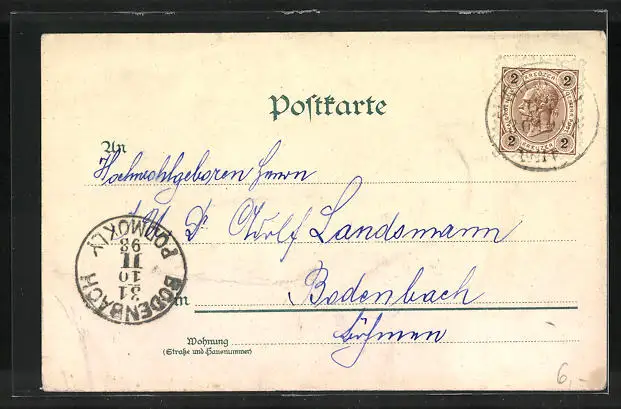 Postkarte
2 KREUZER 2
2 KREUZER 2
An
Hochwohlgeboren Herrn
Dr Adolf Landsmann
in
Bodenbach
Böhmen
Wohnung
(Straße und Hausnummer)
BODENBACH
31
10
II
98
PODMOKLY
6,-